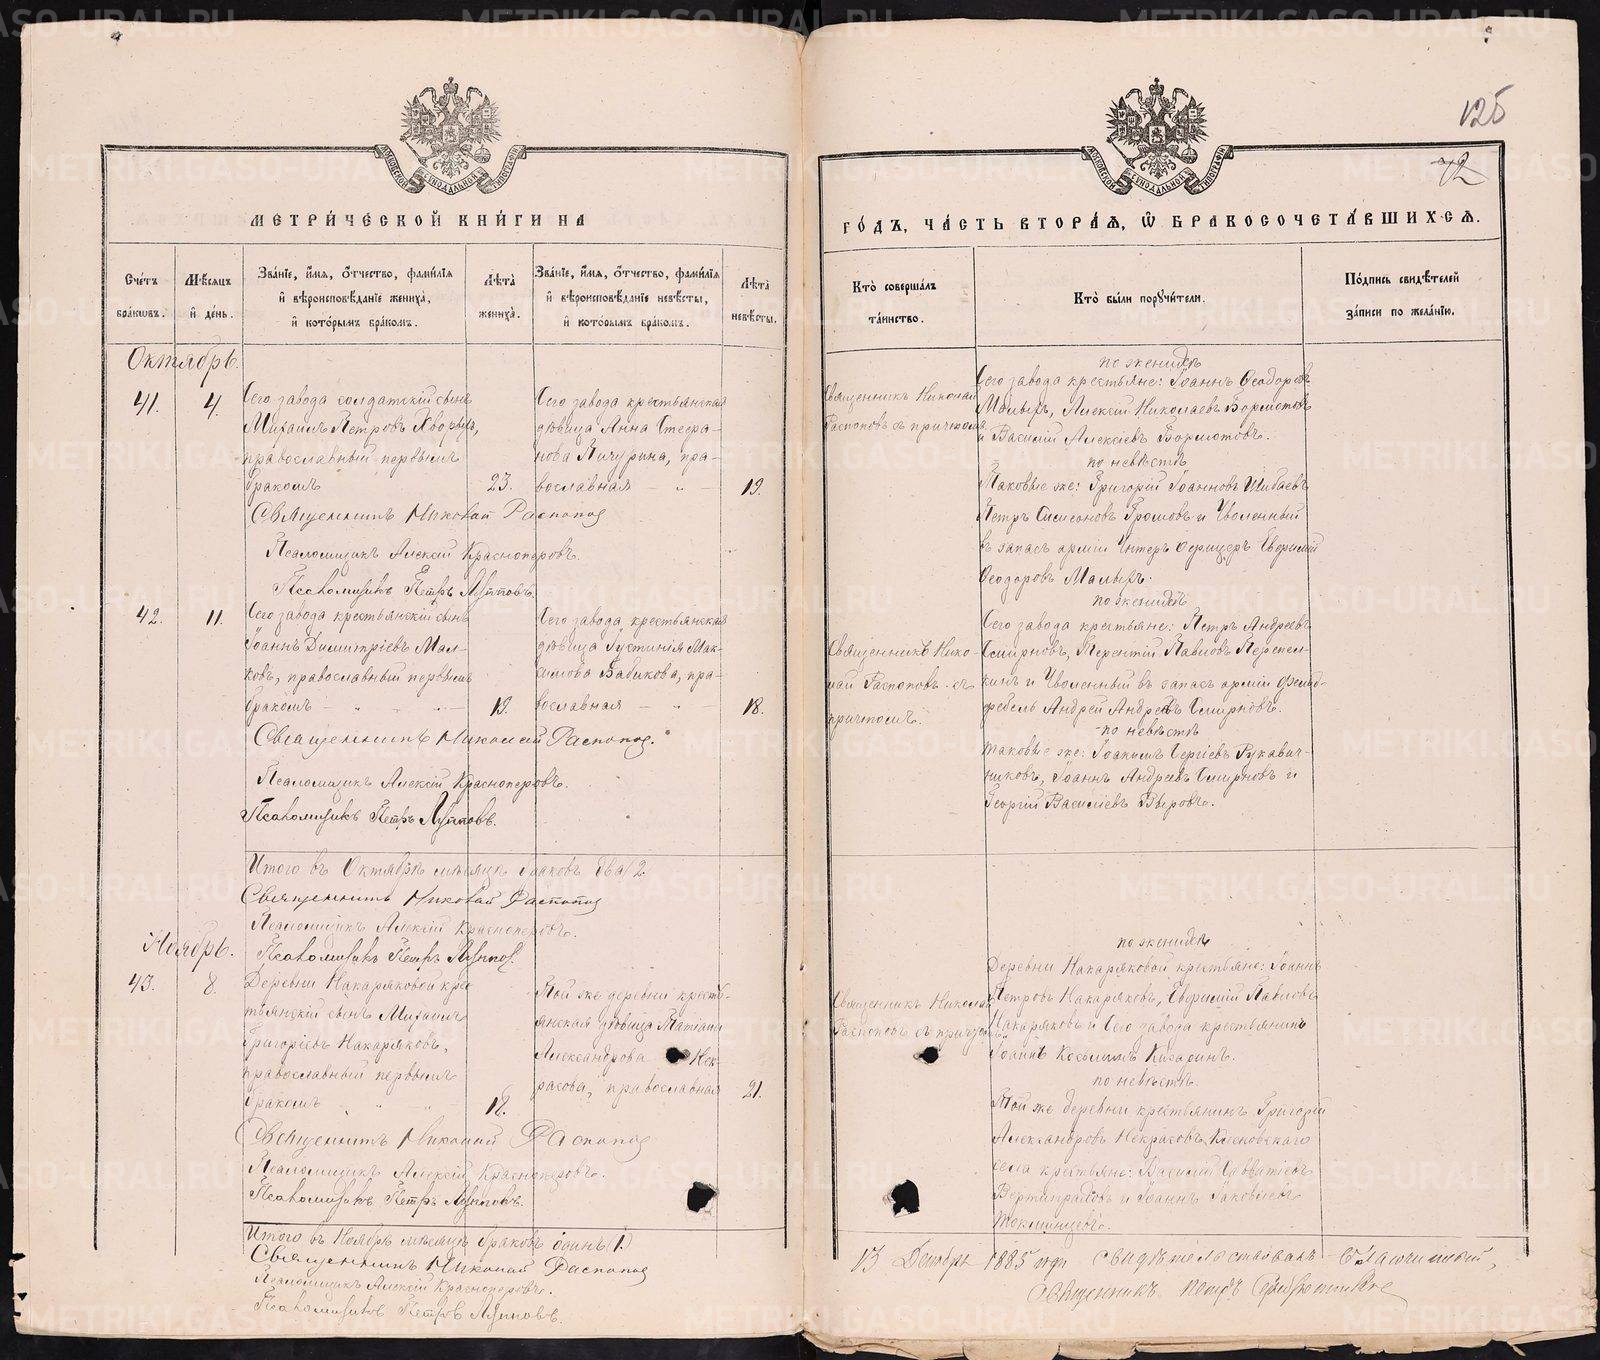 125
72
МОСКОВСКОЙ СУНОДАЛЬНОЙ ТИПОГРАФІИ
МЕТРИ́ЧЕСКОЙ КНИ́ГИ НА
Сче́тъ бра́кωвъ.
Мѣ́сѧцъ и҆ де́нь.
Зва́нїе, и҆́мѧ, ѻ҆́тчество, фами́лїѧ
и҆ вѣроисповѣ́данїе жениха̀,
и҆ кото́рымъ бра́комъ.
Лѣ́та жениха̀.
Зва́нїе, и҆́мѧ, ѻ҆́тчество, фами́лїѧ
и҆ вѣроисповѣ́данїе невѣ́сты,
и҆ кото́рымъ бра́комъ.
Лѣ́та невѣ́сты.
Октябрь.
41.
4.
Сего завода солдатскій сынъ
Михаилъ Петровъ
православный первымъ
бракомъ
23.
Сего завода крестьянская
дѣвица Анна Стефа-
нова Пичурина, пра-
вославная — „ —
19.
Священникъ Николай Распопов
Псаломщикъ Алексій Красноперовъ.
Псаломщикъ Петръ Луpповъ.
42.
11.
Сего завода крестьянскій сынъ
Іоаннъ Димитріевъ Мал-
ковъ, православный первымъ
бракомъ — „ — „ —
19.
Сего завода крестьянская
дѣвица Іустинія Мак-
симова Бабикова, пра-
вославная — „ —
18.
Священникъ Николай Распопов.
Псаломщикъ Алексій Красноперовъ.
Псаломщикъ Петръ Лупповъ.
Итого въ Октябрѣ мѣсяцѣ браковъ два 2.
Священникъ Николай Распопов
Псаломщикъ Алексій Красноперовъ.
Псаломщикъ Петръ Луппов.
Ноябрь.
43.
8.
Деревни Накаряковой крес-
тьянскій сынъ Михаилъ
Григоріевъ Накаряковъ,
православный первымъ
бракомъ „ „
18.
Той же деревни кресть-
янская дѣвица
Александрова Нек-
расова, православная
21.
Священникъ Николай Распопов
Псаломщикъ Алексій Красноперовъ.
Псаломщикъ Петръ Лупповъ.
Итого въ Ноябрѣ мѣсяцѣ браковъ одинъ (1.)
Священникъ Николай Распопов
Псаломщикъ Алексій Красноперовъ.
Псаломщикъ Петръ Лупповъ.
МОСКОВСКОЙ СУНОДАЛЬНОЙ ТИПОГРАФІИ
ГО́ДЪ, ЧА́СТЬ ВТОРА́Ѧ, Ѡ҆ БРАКОСОЧЕТА́ВШИХСѦ.
Кто̀ соверша́лъ
та́инство.
Кто̀ бы́ли порꙋчи́тели.
По́дпись свидѣ́телей
за́писи по жела́нїю.
Священникъ Николай
Распоповъ съ причтомъ
по женихѣ
Сего завода крестьяне: Іоаннъ Ѳеодоровъ
Малыхъ, Алексій Николаевъ Бормотовъ
и Василій Алексіевъ Бормотовъ.
по невѣстѣ
Таковые же: Григорій Іоанновъ Шибаевъ
Петръ Симеоновъ Громовъ и Уволенный
въ запасъ арміи Унтеръ офицеръ Евфимій
Ѳеодоровъ Малыхъ.
Священникъ Нико-
лай Распоповъ съ
причтомъ.
по женихѣ
Сего завода крестьяне: Петръ Андреевъ
Смирновъ, Терентій Павловъ Перепел-
кинъ и Уволенный въ запасъ арміи Фельд-
фебель Андрей Андреевъ Смирновъ.
по невѣстѣ
таковые же: Іоакимъ Сергіевъ Рукавич-
никовъ, Іоаннъ Андреевъ Смирновъ и
Георгій Василіевъ
Священникъ Николай
Распоповъ съ причтомъ.
по женихѣ
Деревни Накаряковой крестьяне: Іоаннъ
Петровъ Накаряковъ, Евфимій Павловъ
Накаряковъ и Сего завода крестьянинъ
Іоаннъ Косьминъ
по невѣстѣ.
Той же деревни крестьянинъ Григорій
Александровъ Некрасовъ,
села крестьяне: Василій
Вертипраховъ и Іоаннъ Іаковлевъ
13 Декабря 1885 года свидѣтельствовалъ Благочинный,
Священникъ Петръ